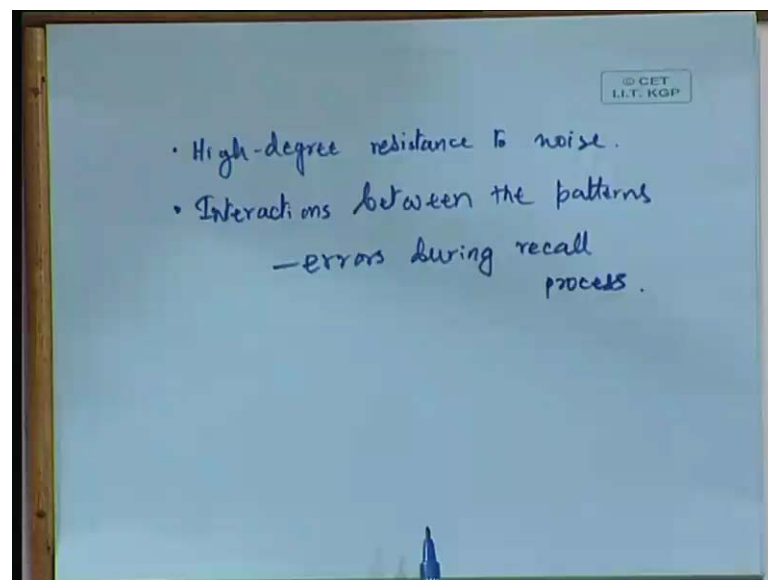 © CET
I.I.T. KGP
• High-degree resistance to noise.
• Interactions between the patterns
— errors during recall
process.